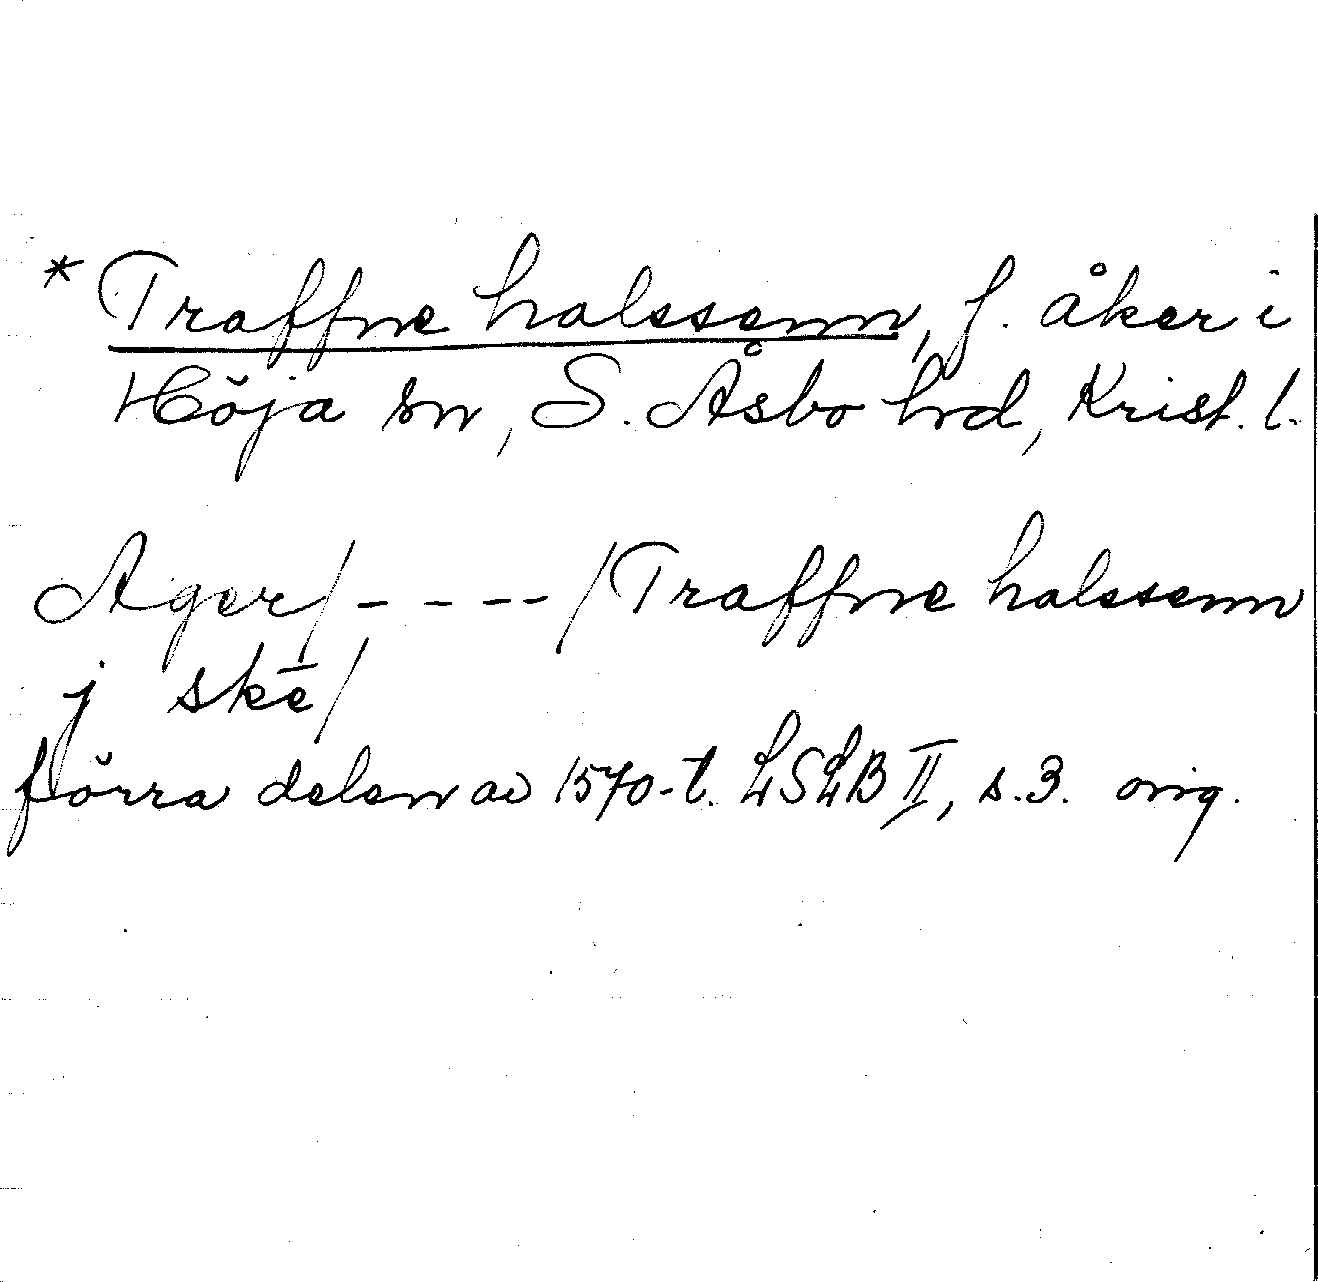 * Traffne halssenn, f. åker i
Höja sn, S. Åsbo hd, Krist. l.
Ager/ - - - - /Traffne halssenn
j skē/
förra delen av 1570-t. LSLB II, s. 3. orig.